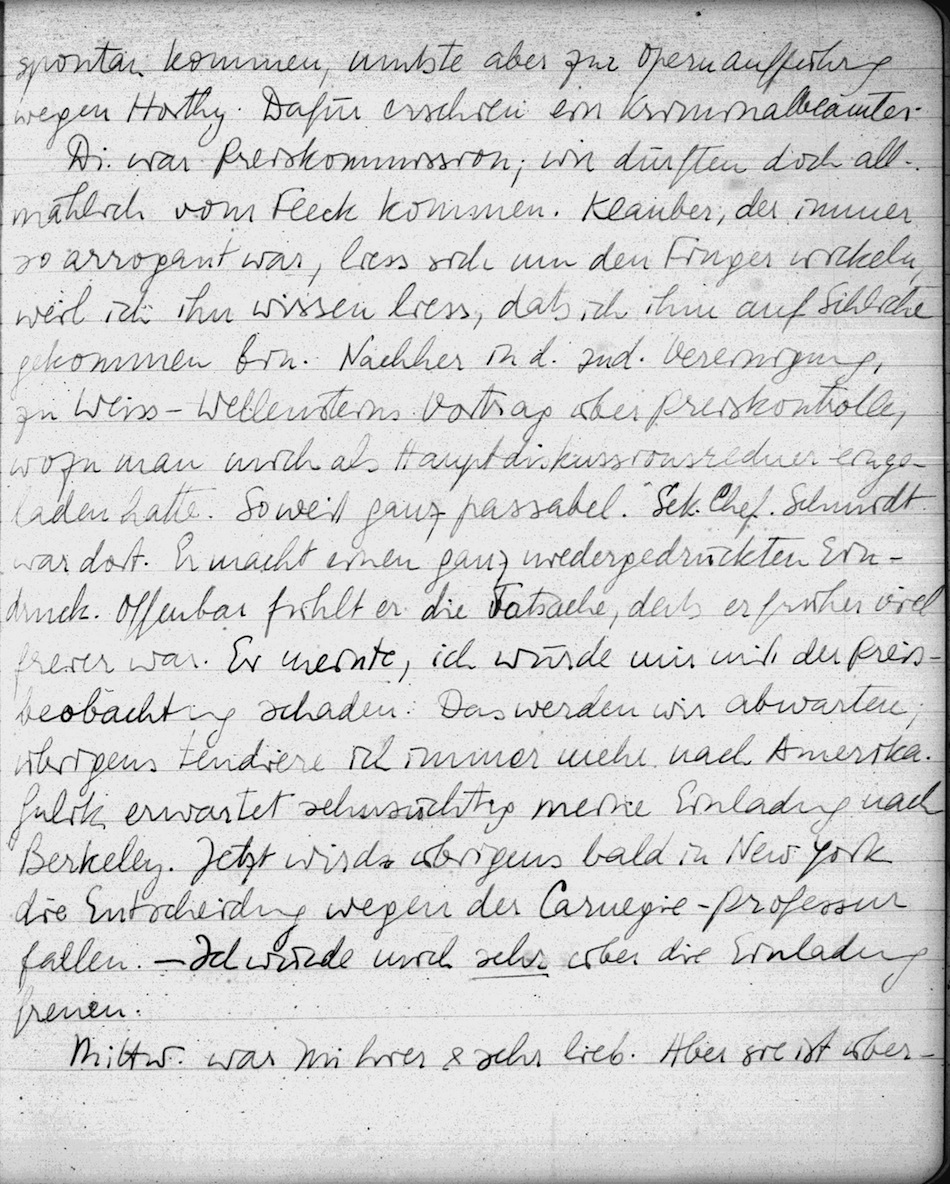 spontan kommen, musste aber zur Opernaufführg
wegen Horthy. Dafür erschien ein Kriminalbeamter.
Di. war Preiskommission; wir dürften doch all-
mählich vom Fleck kommen. Klauber, der immer
so arrogant war, liess sich um den Finger wickeln,
weil ich ihn wissen liess, dass ich ihm auf Schliche
gekommen bin. Nachher in d. Ind. Vereinigung,
zu Weiss-Wellensteins Vortrag über Preiskontrolle,
wozu man mich als Hauptdiskussionsredner einge-
laden hatte. Soweit ganz passabel. Sek. Chef. Schmidt
war dort. Er macht einen ganz niedergedrückten Ein-
druck. Offenbar fühlt er die Tatsache, dass er früher viel
freier war. Er meinte, ich würde mir mit der Preis-
beobachtung schaden. Das werden wir abwarten;
übrigens tendiere ich immer mehr nach Amerika.
Gulik erwartet sehnsüchtig meine Einladng nach
Berkeley. Jetzt wird übrigens bald in New York
die Entscheidng wegen der Carnegie-Professur
fallen. — Ich würde mich sehr über die Einladung
freuen.
Mittw. war Mi hier & sehr lieb. Aber sie ist über-